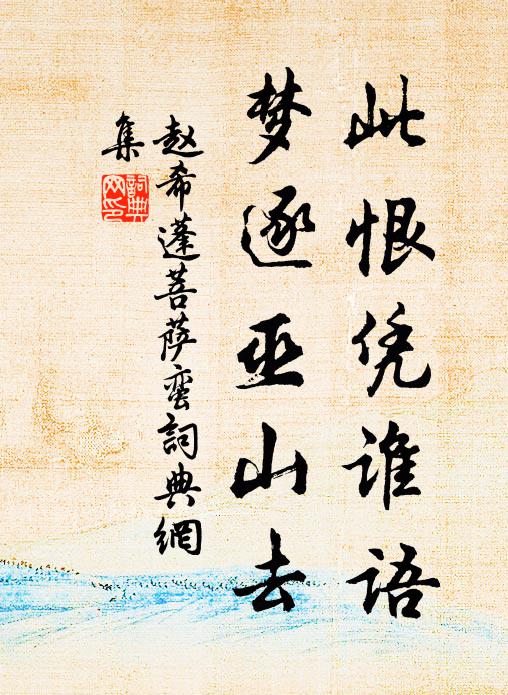 此恨凭谁语
梦逐巫山去
赵希蓬菩萨蛮词典網
集
詞典
网印